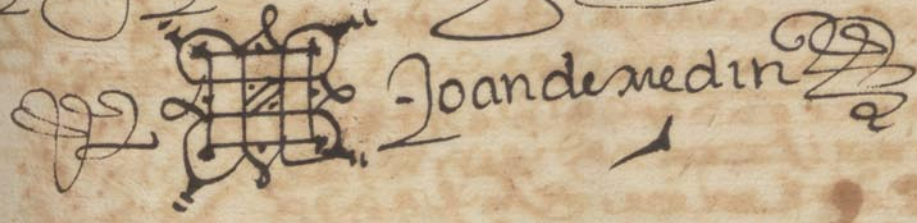 Joan de medin a